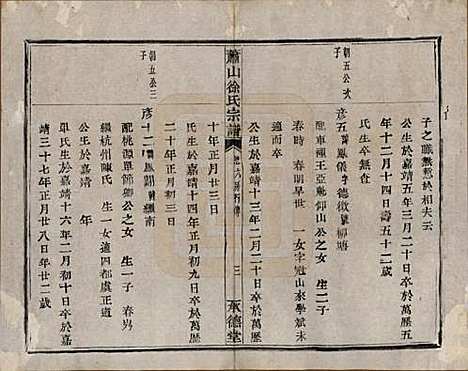 子之職無愆於相夫云
公生於嘉靖五年三月二十日卒於萬歷五
年十二月十四日壽五十二歲
氏生卒無查
朝五公次
子
彥五 鳳儀字德徵號柳塘
配車程王亞 仰山公之女 生二子
春時 春期早世 一女字冠山來學斌未
公生於嘉靖十三年二月二十日卒於萬歷
蕭山徐氏宗譜
三
承德堂
十年正月廿三日
氏生於嘉靖十四年正月初九日卒於萬歷
二十年正月初三日
朝五公三
子
彥十二 鳳翻號繼南
配桃源單節卿公之女 生一子 春男
繼杭州陳氏 生一女適四都虞正道
公生於嘉靖 年
單氏生於嘉靖十六年二月初十日卒於嘉
靖三十七年正月廿八日年廿二歲